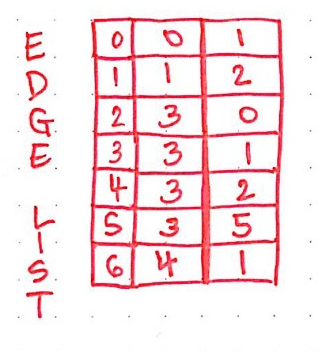 EDGE LIST
0 0 1
1 1 2
2 3 0
3 3 1
4 3 2
5 3 5
6 4 1